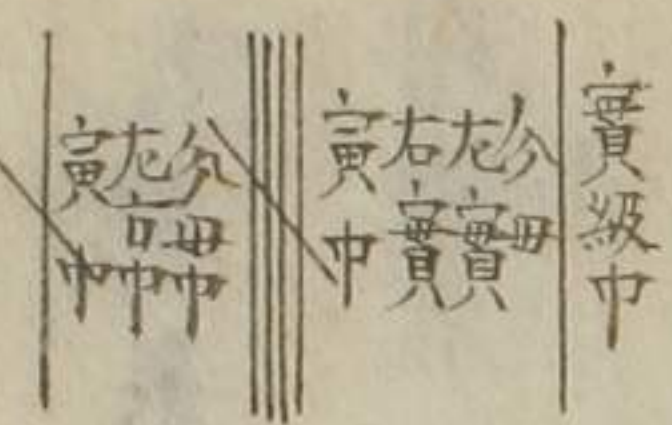 實級巾
分母
左實
右實
寅巾
分母巾
左右巾
寅巾